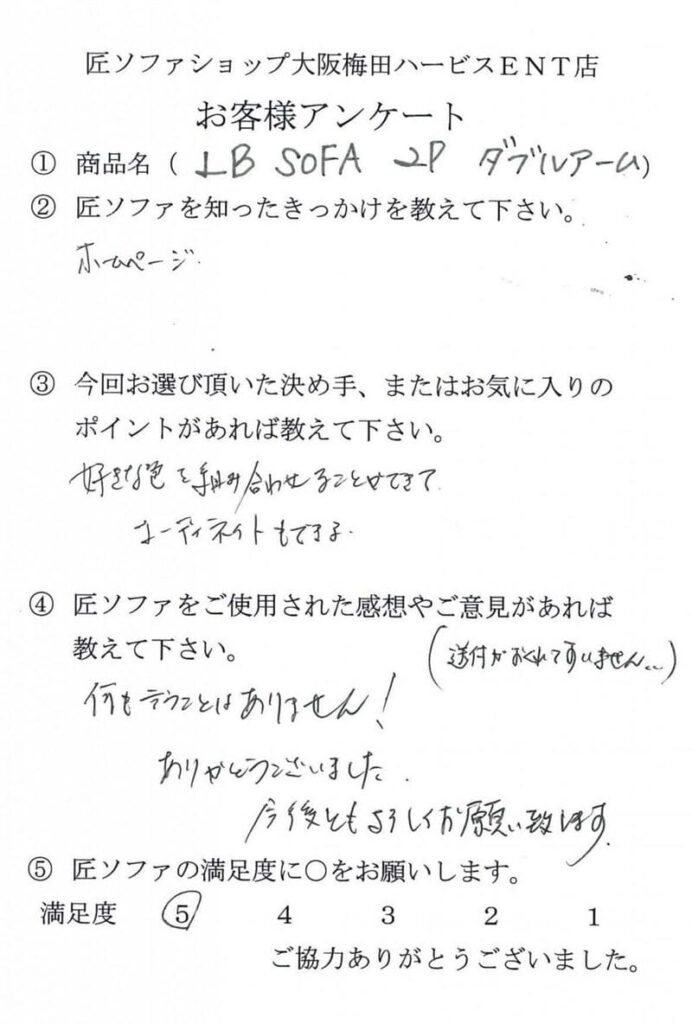 匠ソファショップ大阪梅田ハービスENT店
お客様アンケート
① 商品名（ LB SOFA 2P ダブルアーム）
② 匠ソファを知ったきっかけを教えて下さい。
ホームページ.
③ 今回お選び頂いた決め手、またはお気に入りの
ポイントがあれば教えて下さい。
好きな色を組み合わせることができて
コーディネイトもできる.
④ 匠ソファをご使用された感想やご意見があれば
教えて下さい。
（送付がおくれてすいません..）
何も言うことはありません！
ありがとうございました.
今後ともよろしくお願い致します.
⑤ 匠ソファの満足度に○をお願いします。
満足度 5 4 3 2 1
ご協力ありがとうございました。